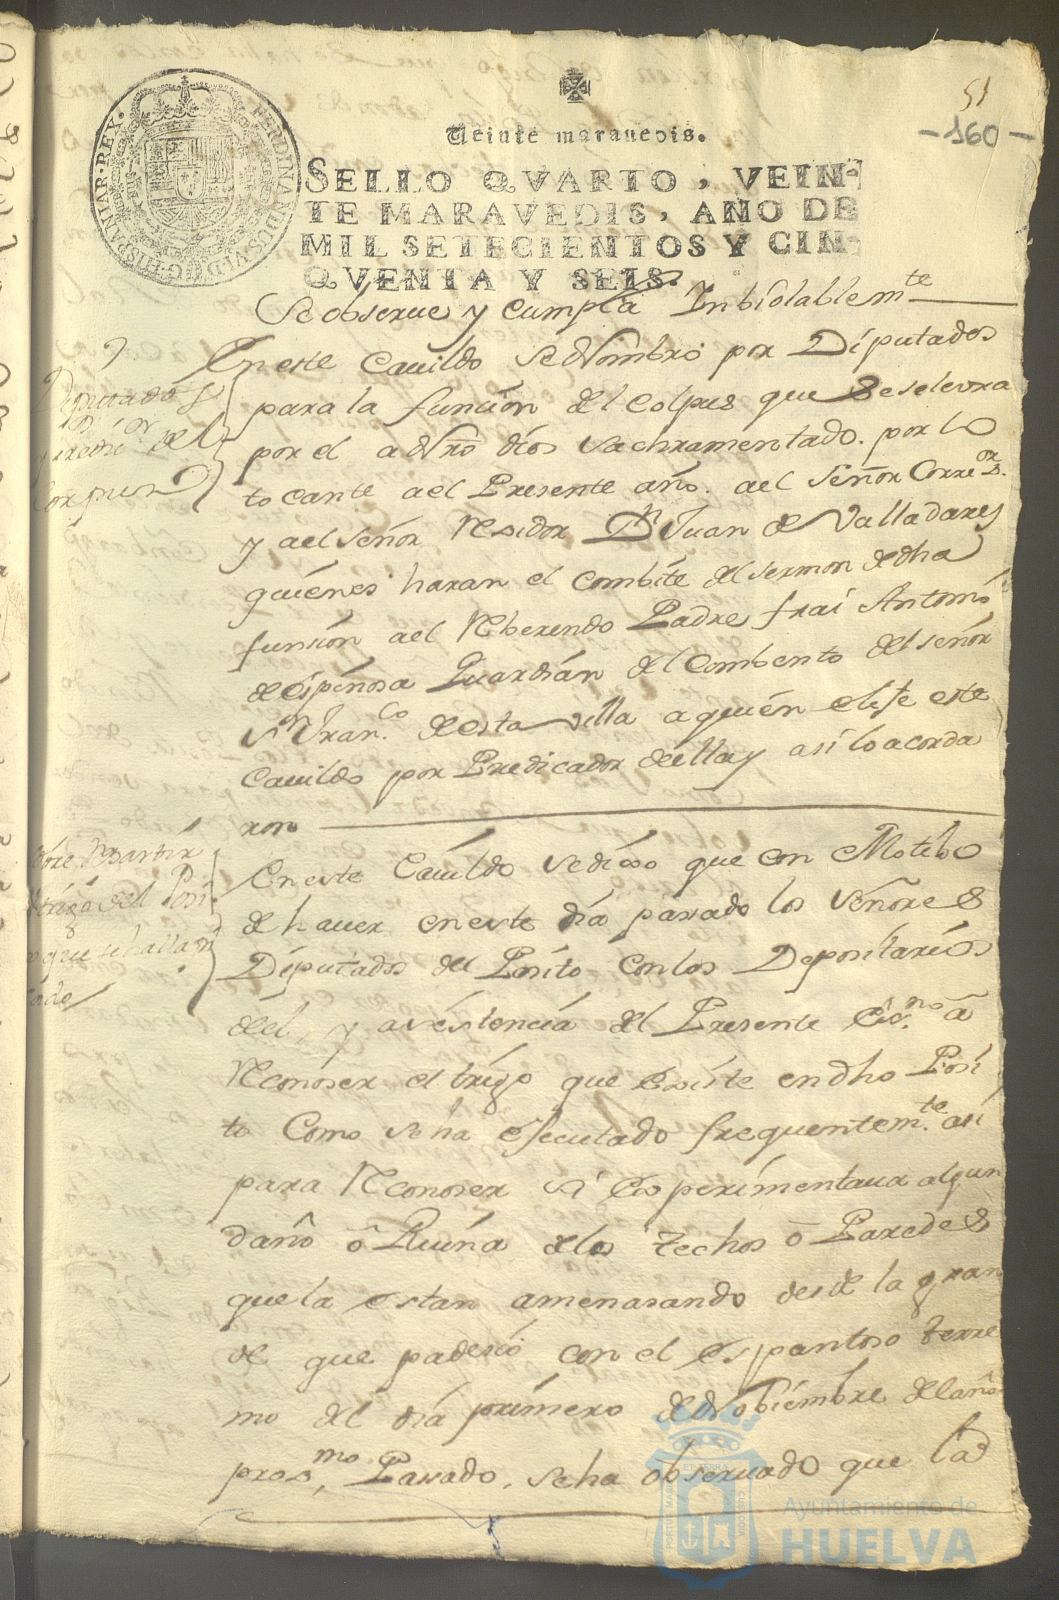 51
-160-
HISPANIAR·REX· FERDINANDUS·VI·D·G·
Veinte maravedis.
SELLO QVARTO, VEIN-
TE MARAVEDIS, AÑO DE
MIL SETECIENTOS Y CIN-
QVENTA Y SEIS.
Se observe y cumpla Inbiolablemte
Diputados
y Predicor del
Corpus
En este Cauildo se Nombro por Diputados
para la funcion del Colpus que se selevra
por el a Nro Dios Sachramentado. por lo
tocante a el Presente año. a el Señor Correor
y a el señor Rexidor Dn Juan de Valladares
quienes haran el combite del sermon de dha
funsion a el Rberendo Padre frai Antonio
de Espinosa Guardian del Combento del señor
Sn Franco de esta villa a quien elije este
Cauildo por Predicador de ella y asi lo acorda
ron
Sobre Rpartir
el trigo del Posi
to que se halla
Eneste Cauildo se dixo que con Motibo
de hauer en este dia pasado los Señores
Diputados del Posito con los Depositarios
de el, y asistencia del Presente Essno a
Rconoser el trigo que existe en dho Posi
to Como se ha ejecutado frequentemte asi
para Rconoser si Experimentaua algun
daño o Ruina de los techos o Paredes
que la estan amenasando desde la gran
de que padesio con el espantoso terre
mo del dia primero de Nobiembre del año
proxmo Pasado, se ha observado que la
Ayuntamiento de
HUELVA